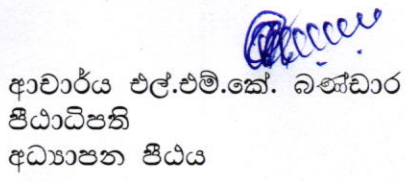 ආචාර්ය එල්.එම්.කේ. බණ්ඩාර
පීඨාධිපති
අධ්‍යාපන පීඨය